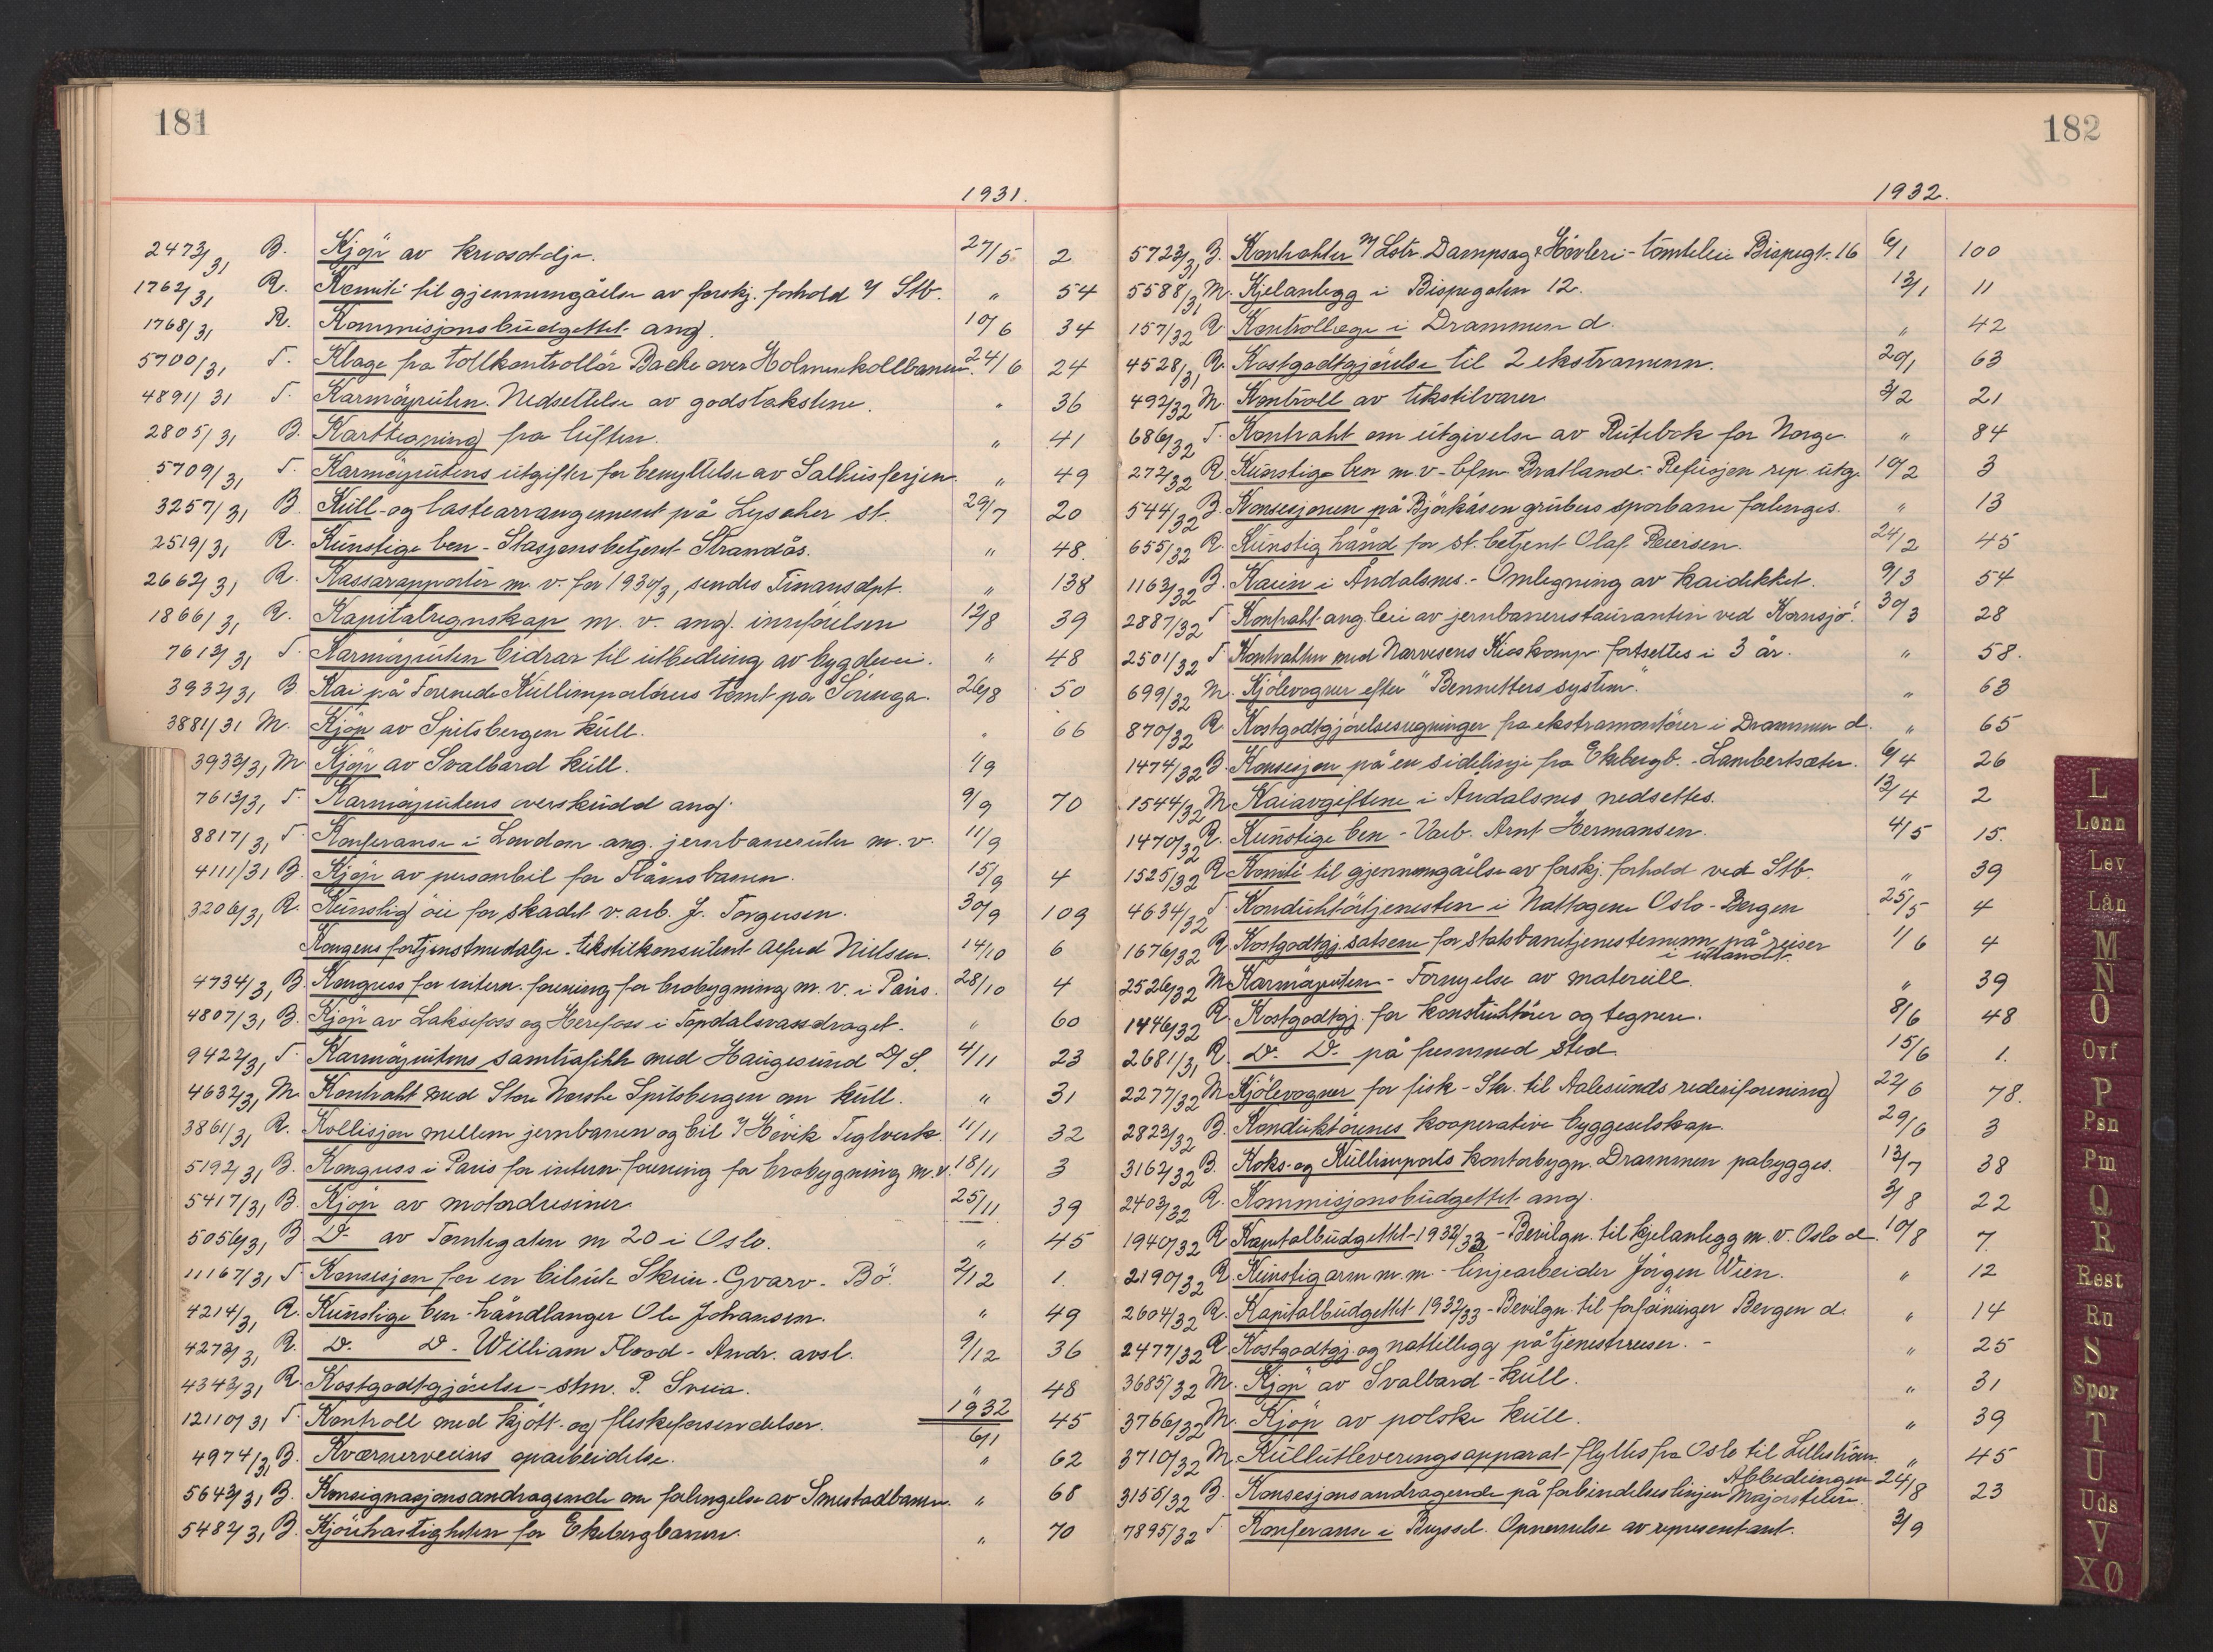 181
1931.
2473/31 B. Kjöp av kreosotolje. 27/5 2
1762/31 R. Komité til gjennemgåelse av forskj. forhold v/ Stb. " 54
1768/31 R. Kommisjonsbudgettet ang. 10/6 34
5700/31 T. Klage fra tollkontrollör Bache over Holmenkollbanen. 24/6 24
4891/31 T. Karmöyruten. Nedsettelse av godstakstene. " 36
2805/31 B. Karttegning fra luften. " 41
5709/31 T. Karmöyrutens utgifter for benyttelse av Salhusferjen. " 49
3257/31 B. Kull- og lastearrangement på Lysaker st. 29/7 20
2519/31 R. Kunstige ben - Stasjonsbetjent Strandås. " 48
2662/31 R. Kassarapporter m. v. for 1930/31, sendes Finansdpt. " 138
1866/31 R. Kapitalregnskap m. v. ang. innförelsen 12/8 39
7613/31 T. Karmöyruten bidrar til utbedring av bygdevei. " 48
3932/31 B. Kai på Forenede Kullimportörers tomt på Sörenga. 26/8 50
3881/31 M. Kjöp av Spitsbergen kull. " 66
3933/31 M. Kjöp av Svalbard kull. 1/9
7613/31 T. Karmöyrutens overskudd ang. 9/9 70
8817/31 T. Konferanse i London ang. jernbaneruter m. v. 11/9
4111/31 B. Kjöp av personbil for Flåmsbanen. 15/9 4
3206/31 R. Kunstig öie for skadet v. arb. J. Torgersen. 30/9 109
Kongens fortjenstmedalje. tekstilkonsulent Alfred Nielsen. 14/10 6
4734/31 B. Kongress for intern. forening for brobygning m. v. i Paris. 28/10 4
4807/31 B. Kjöp av Laksefoss og Herefoss i Topdalsvassdraget. " 60
9422/31 T. Karmöyrutens samtrafikk med Haugesund D/S. 4/11 23
4632/31 M. Kontrakt med Store Norske Spitsbergen om kull. " 31
3861/31 R. Kollisjon mellem jernbanen og bil v/ Hövik Teglverk. 11/11 32
5192/31 B. Kongress i Paris for intern. forening for brobygning m. v. 18/11 3
5417/31 B. Kjöp av motordresiner. 25/11 39
5056/31 B. D- av Tomtegaten nr 20 i Oslo. " 45
11167/31 T. Konsesjon for en bilrute Skien - Gvarv - Bö. 2/12 1.
4214/31 R. Kunstige ben - håndlanger Ole Johansen. " 49
4273/31 R. D- D- William Flood - Andr. avsl. 9/12 36
4343/31 R. Kostgodtgjörelse - stm. P. Sveia. " 48
12110/31 T. Kontroll med kjött- og fleskeforsendelser. 1932 6/1 45
4974/31 B. Kværnerveiens oparbeidelse. " 62
5643/31 B. Konsignasjonsandragende om forlengelse av Smestadbanen. " 68
5482/31 B. Kjörehastigheten for Ekebergbanen. " 70
182
1932.
5723/31 B. Kontrakter m/ Lstr. Dampsag & Hövleri - tomteleie Bispegt. 16 6/1 100
5588/31 M. Kjelanlegg i Bispegaten 12. 13/1 11
157/32 R. Kontrollege i Drammen d. " 42
4528/31 R. Kostgodtgjörelse til 2 ekstramenn. 20/1 63
492/32 M. Kontroll av tekstilvarer 3/2 21
686/32 T. Kontrakt om utgivelse av Rutebok for Norge. " 84
272/32 R. Kunstige ben m. v - bfm. Bratland - Refusjon rep. utg. 10/2 3
544/32 B. Konsesjonen på Björkåsen grubers sporbane forlenges. " 13
655/32 R. Kunstig hånd for st. betjent Olaf 24/2 45
1163/32 B. Kaien i Åndalsnes. - Omlegning av kaidekket. 9/3 54
2887/32 T. Kontrakt ang. leie av jernbanerestauranten ved Kornsjö. 30/3 28
2501/32 T. Kontrakten med Narvesens Kioskomp. fortsettes i 3 år. " 58.
699/32 M. Kjölevogner efter "Bennetters system". " 63
870/32 R. Kostgodtgjörelsesregninger fra ekstramontörer i Drammen d. " 65
1474/32 B. Konsesjon på en sidelinje fra Ekebergb. - Lambertseter. 6/4 26
1544/32 M. Kaiavgiftene i Åndalsnes nedsettes. 13/4 2
1470/32 R. Kunstige ben - Varb. Arnt Hermansen. 4/5 15.
1525/32 R. Komité til gjennemgåelse av forskj. forhold ved Stb. " 39
4634/32 T. Konduktörtjenesten i Nattogene Oslo - Bergen 25/5 4
1676/32 R. Kostgodtgj. satsene for statsbanetjenestemenn på reiser i utlandet. 1/6 4
2526/32 M. Karmöyruten - Fornyelse av materiell. " 39
1446/32 R. Kostgodtgj. for konstruktörer og tegnere. 8/6 48
2681/31 R. D- D- på fremmed sted. 15/6 1.
2277/32 M. Kjölevogner for fisk - Skr. til Aalesunds rederiforening 22/6 78.
2823/32 B. Konduktörenes kooperative byggeselskap. 29/6 3
3162/32 B. Koks- og Kullimports kontorbygn. Drammen påbygges. 13/7 38
2403/32 R. Kommisjonsbudgettet ang. 3/8 22
1940/32 R. Kapitalbudgettet - 1932/33 - Bevilgn. til kjelanlegg m. v. Oslo d. 10/8 7.
2190/32 R. Kunstig arm m. m - linjearbeider Jörgen Wien. " 12
2604/32 R. Kapitalbudgettet 1932/33 - Bevilgn. til forföininger Bergen d. " 14
2477/32 R. Kostgodtgj. og nattillegg på tjenestereiser. - " 25
3685/32 M. Kjöp av Svalbard - kull. " 31
3766/32 M. Kjöp av polske kull. " 39
3710/32 M. Kullutleveringsapparat flyttes fra Oslo til Lilleström. " 45
3155/32 B. Konsesjonsandragende på forbindelseslinjen Abbediengen Majorstuen. 24/8 23
7895/32 T. Konferanse i Bryssel. Opnevnelse av representant. 3/9
L
Lønn
Lev
Lån
M
N
O
Ovf
P
Psn
Pm
Q
R
Rest
Ru
S
Spor
T
U
Uds
V
XØ